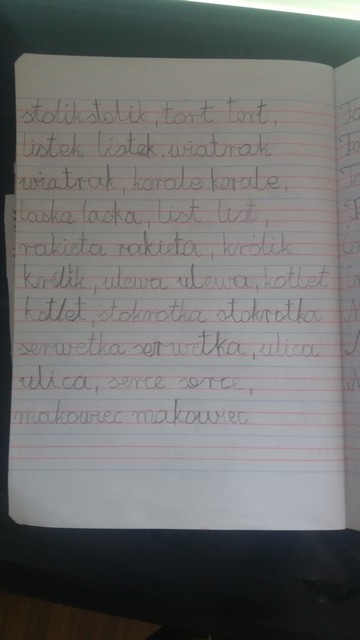 stolik stolik, tort tort,
listek listek, wiatrak
wiatrak, korale korale,
laska laska, list list,
rakieta rakieta, królik
królik, ulewa ulewa, kotlet
kotlet, stokrotka stokrotka
serwetka serwetka, ulica
ulica, serce serce,
makowiec makowiec